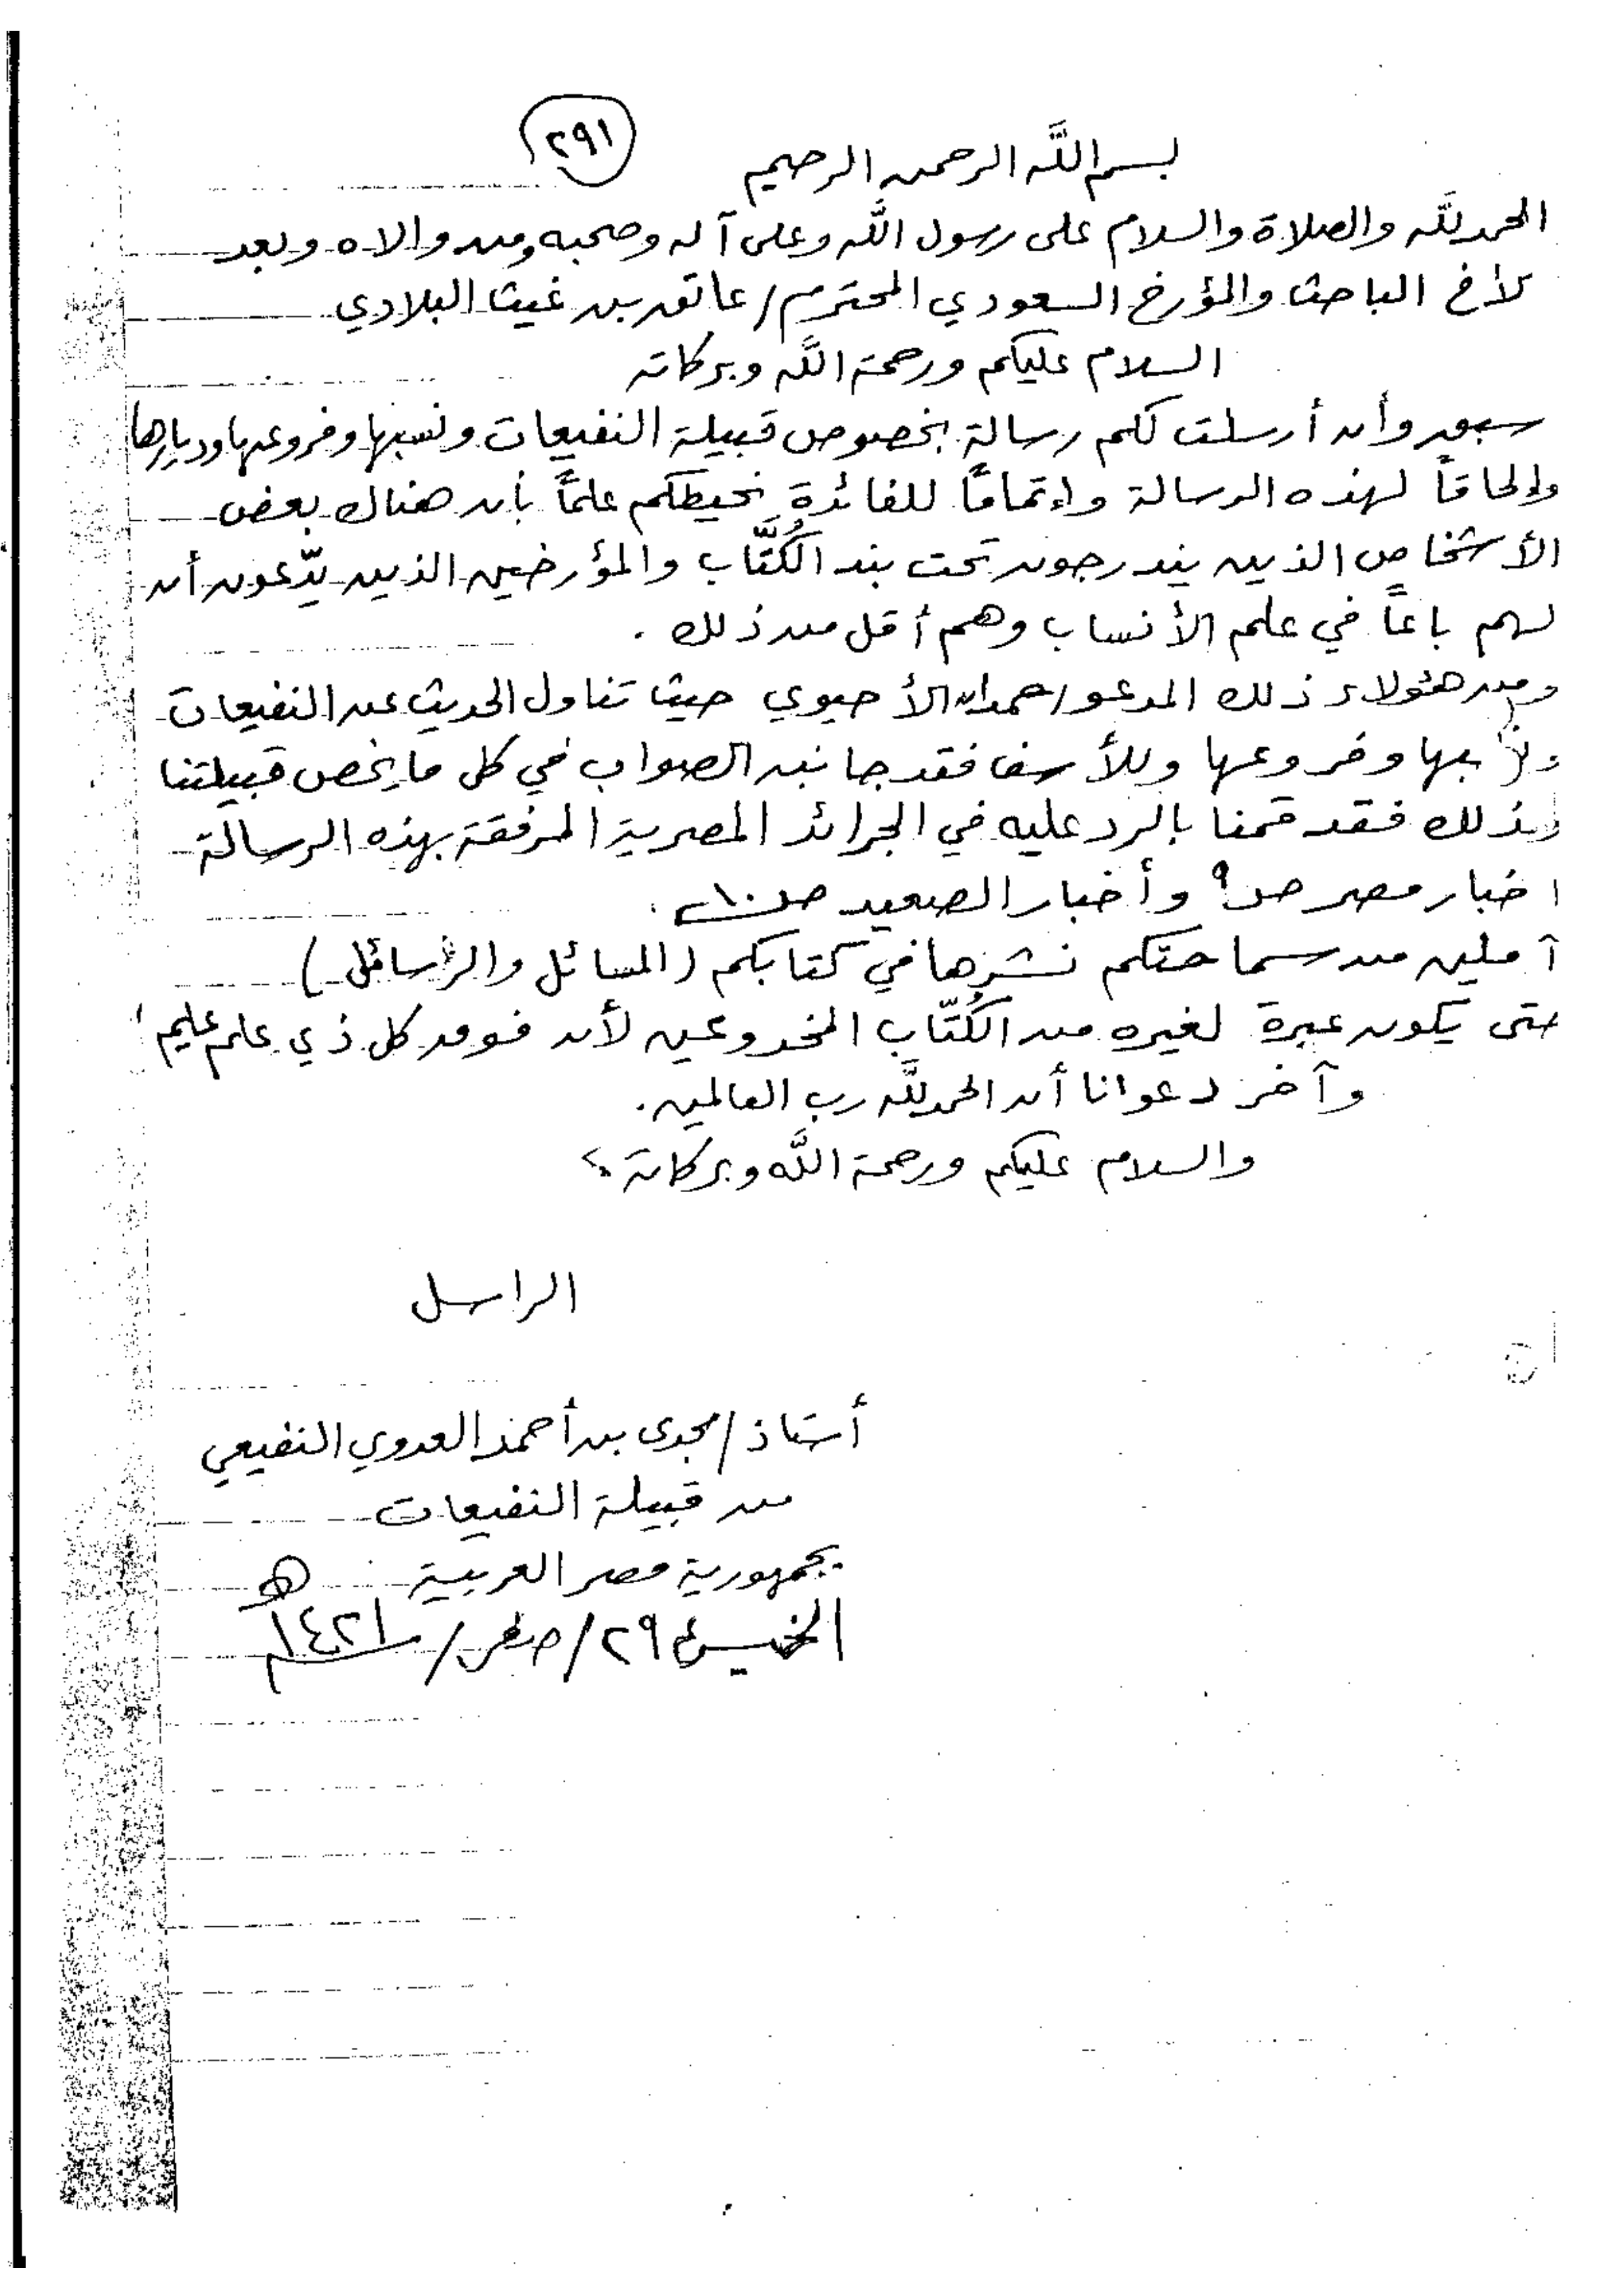 ٢٩١
بسم اللَّه الرحمن الرحيم
الحمد للَّه والصلاة والسلام على رسول اللَّه وعلى آله وصحبه ومن والاه وبعد
لأخ الباحث والمؤرخ السعودي المحترم/ عاتق بن غيث البلادي
السلام عليكم ورحمة اللَّه وبركاته
سبق وأن أرسلت لكم رسالة بخصوص قبيلة النفيعات ونسبها وفروعها وديارها
وإلحاقاً لهذه الرسالة وإتماماً للفائدة نحيطكم علماً بأن هناك بعض
الأشخاص الذين يندرجون تحت بند الكُتَّاب والمؤرخين الذين يدّعون أن
لهم باعاً في علم الأنساب وهم أقل من ذلك .
ومن هئولاء ذلك المدعو/ حمدان الأحيوي حيث تناول الحديث عن النفيعات
وفروعها وللأسف فقد جانبه الصواب في كل ما يخص قبيلتنا
فقد قمنا بالرد عليه في الجرائد المصرية المرفقة بهذه الرسالة
اخبار مصر ص٩ وأخبار الصعيد ص١٠ .
آملين من سماحتكم نشرها في كتابكم (المسائل والرسائل)
حتى يكون عبرة لغيره من الكُتّاب المخدوعين لأن فوق كل ذي علم عليم
وآخر دعوانا أن الحمد للَّه رب العالمين .
والسلام عليكم ورحمة اللَّه وبركاته
الراسل
أستاذ/ مجدى بن أحمد العدوي النفيعي
من قبيلة النفيعات
بجمهورية مصر العربية
الخميس ٢٩/صفر/١٤٢١هـ